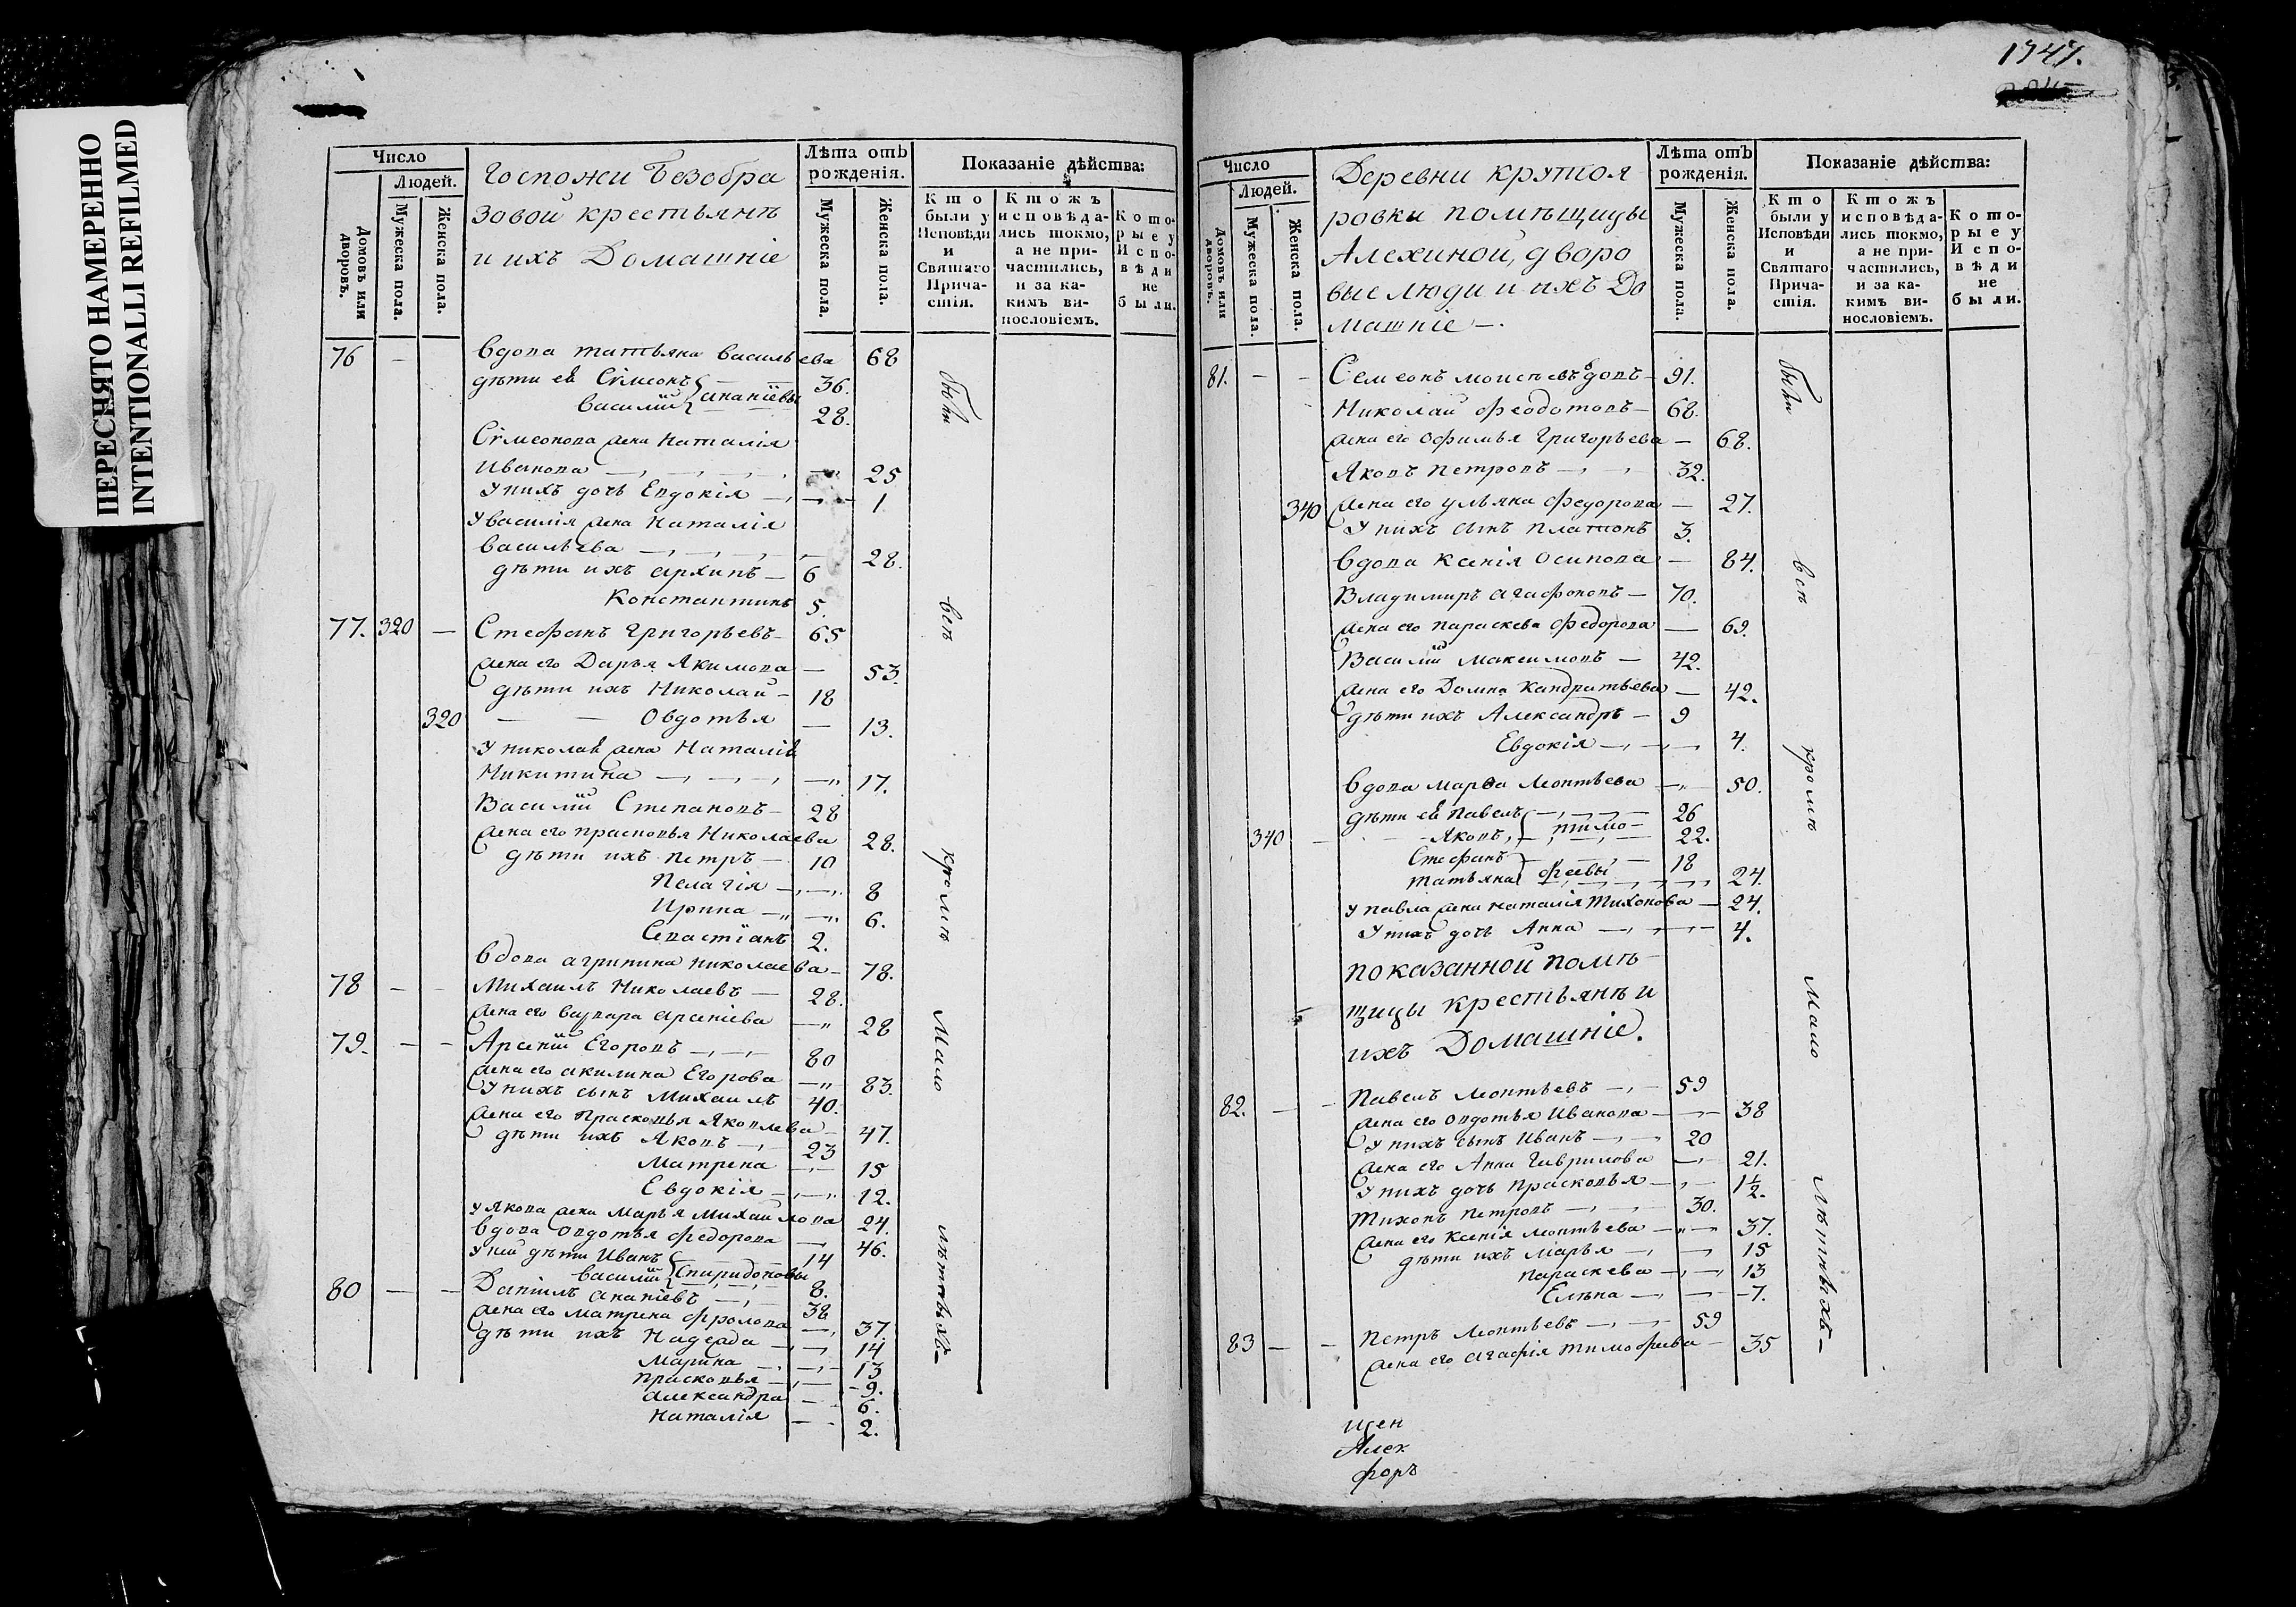 ПЕРЕСНЯТО НАМЕРЕННО
INTENTIONALLI REFILMED
Число
Людей.
Домовъ или дворовъ.
Мужеска пола.
Женска пола.
Госпожи Безобра
зовой крестьянѣ
и ихъ Домашніе
Лѣта отъ рожденія.
Мужеска пола.
Женска пола.
Показаніе дѣйства:
Кто были у Исповѣди и Святаго Причастія.
Ктожъ исповѣдались токмо, а не причастились, и за какимъ винословіемъ.
Которые у Исповѣди не были.
76 — вдова татьяна васильева 68
дѣти ея Сѵмеонъ 36.
василій ананіевы 28.
Сѵмеонова жена наталія
Иванова 25
У нихъ дочь Евдокія 1
У василія жена наталія
васильева 28.
дѣти ихъ архипъ 6
Константинъ 5.
77. 320 — Стефанъ григорьевъ 65
жена его Дарья Якимова — 53.
дѣти ихъ Николай 18
320 — — Овдотья — 13.
У николая жена Наталія
Никитина 17.
Василій Степановъ 28
жена его прасковья Николаева 28.
дѣти ихъ петръ 10
Пелагія 8
Ирина 6.
Севастіанъ 2.
вдова агрипина николаева 78.
78 — — Михаилъ Николаевъ 28.
жена его варвара арсеніева 28
79. — — Арсеній Егоровъ 80
жена его акилина Егорова 83.
У нихъ сынъ Михаилъ 40.
жена его Прасковья Яковлева 47.
дѣти ихъ Яковъ 23
Матрена 15
Евдокія 12.
у Якова жена Марья Михаилова 24.
вдова овдотья федорова 46.
У ней дѣти Иванъ 14
василій Спиридоновы 8.
80 — — Даніилъ ананіевъ 38
жена его матрена фролова 37.
дѣти ихъ Надежда 14
Марина 13
прасковья 9.
александра 6.
наталія 2.
были всѣ кромѣ мало лѣтныхъ
1747.
Число
Людей.
Домовъ или дворовъ.
Мужеска пола.
Женска пола.
Деревни крутоя
ровки помѣщицы
Алехиной, дворо
вые люди и ихъ До
машніе —.
Лѣта отъ рожденія.
Мужеска пола.
Женска пола.
Показаніе дѣйства:
Кто были у Исповѣди и Святаго Причастія.
Ктожъ исповѣдались токмо, а не причастились, и за какимъ винословіемъ.
Которые у Исповѣди не были.
81. — — Семеонъ моисѣевъ вдовъ 91.
Николай феодотовъ 68.
жена его офимья григорьева — 68.
Яковъ петровъ 32.
340 жена его ульяна федорова — 27.
У нихъ сынъ платонъ 3.
вдова ксенія осипова — 84.
Владимиръ агафоновъ — 70.
жена его параскева федорова — 69.
Василій максимовъ — 42.
жена его Домна Кандратьева — 42.
дѣти ихъ Александръ — 9
Евдокія 4.
вдова марѳа леонтьева 50.
дѣти ея павелъ 26
340 — Яковъ, тимо- 22.
Стефанъ 18
татьяна феевы 24.
у павла жена наталія тихонова 24.
У нихъ дочь Анна 4.
показанной помѣ-
щицы крестьянѣ и
ихъ Домашніе.
82. — — Павелъ леонтьевъ 59
жена его овдотья Иванова 38
у нихъ сынъ Иванъ 20
жена его Анна гаврилова 21.
у нихъ дочь прасковья 1½.
тихонъ петровъ 30.
жена его ксенія леонтьева 37.
дѣти ихъ марья 15
параскева 13
Елѣна 7.
83 — — петръ леонтьевъ 59
жена его агафія тимофеева 35
были всѣ кромѣ мало лѣтныхъ
Алек
форъ